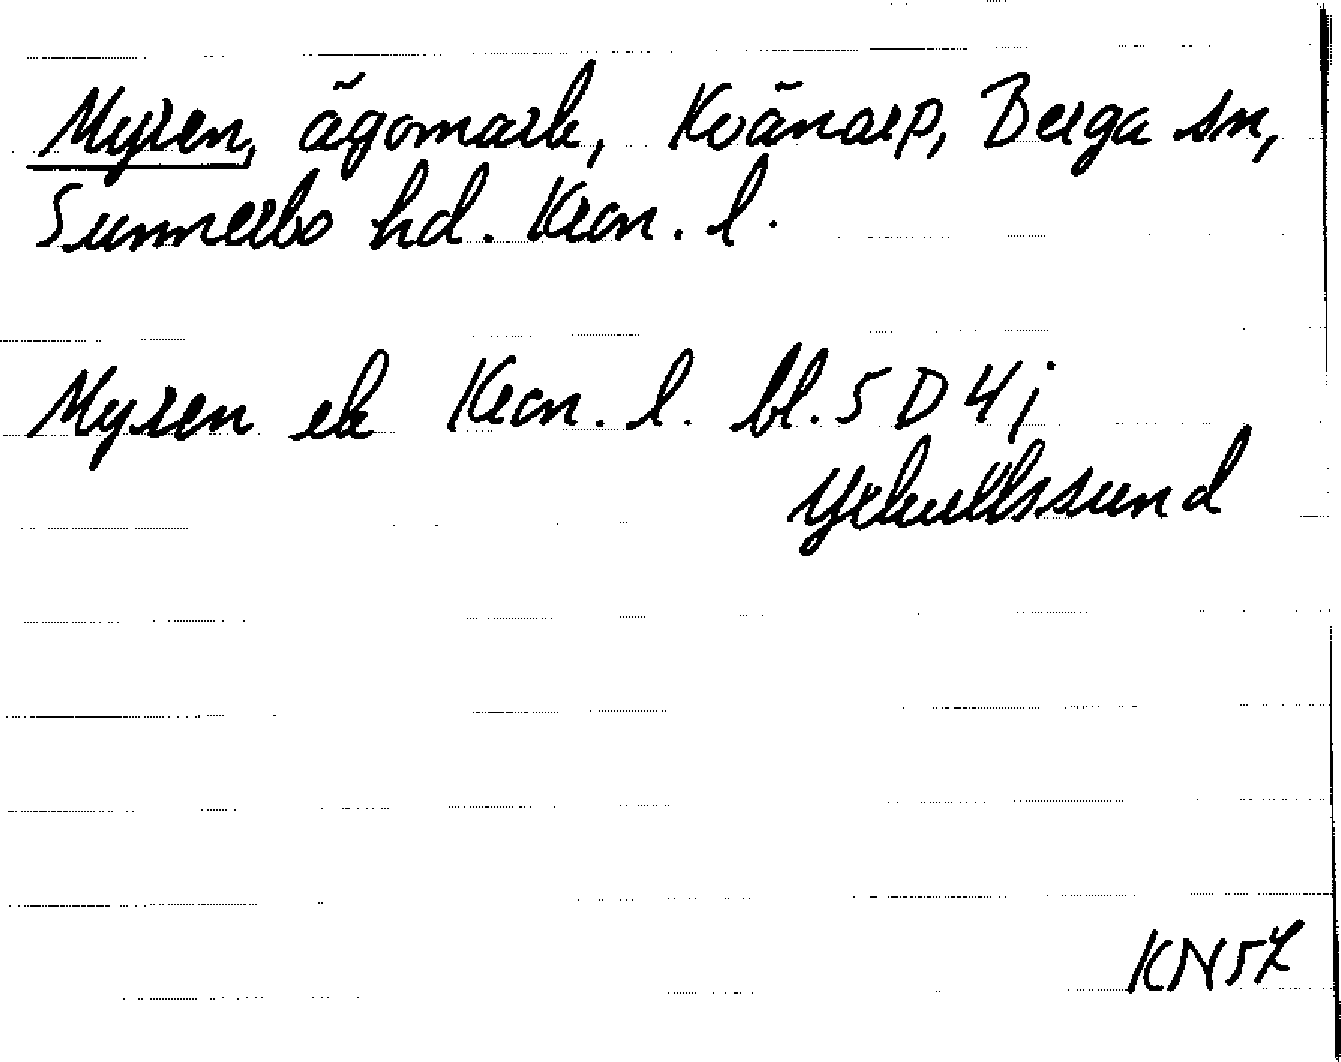 Myren, ägomark, Kvänarp, Berga sn,
Sunnerbo hd. Kron. l.
Myren ek Kron. l. bl. 5 D 4 j
Yxkullssund
KN57